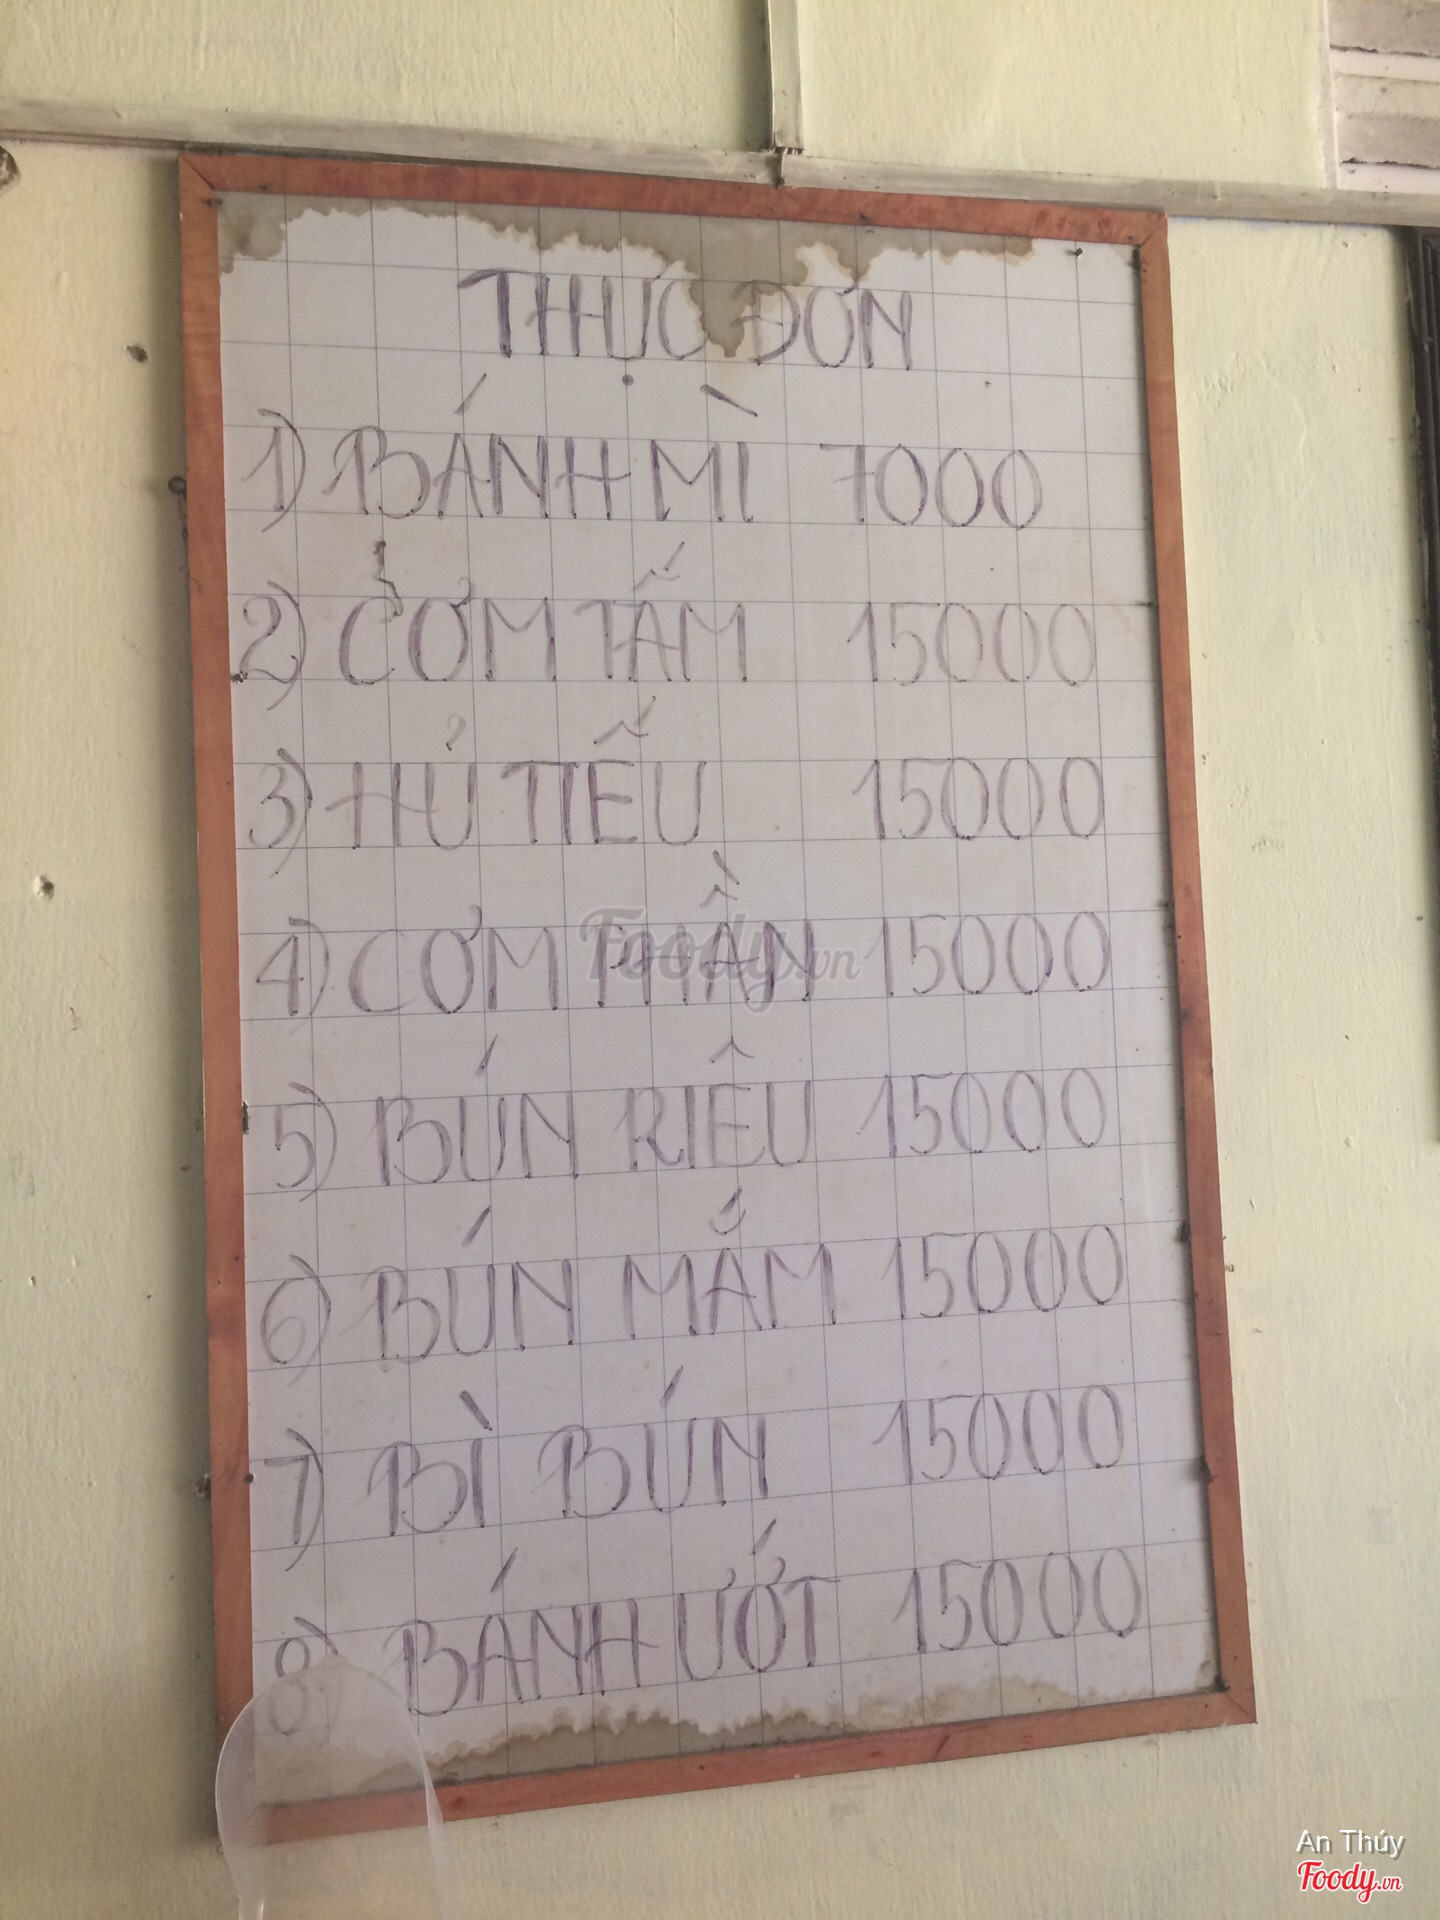 THỰC ĐƠN
1) BÁNH MÌ 7000
2) CƠM TẤM 15000
3) HỦ TIẾU 15000
4) CƠM PHẦN 15000
Foody.vn
5) BÚN RIÊU 15000
6) BÚN MẮM 15000
7) BÌ BÚN 15000
8) BÁNH ƯỚT 15000
An Thúy
Foody.vn